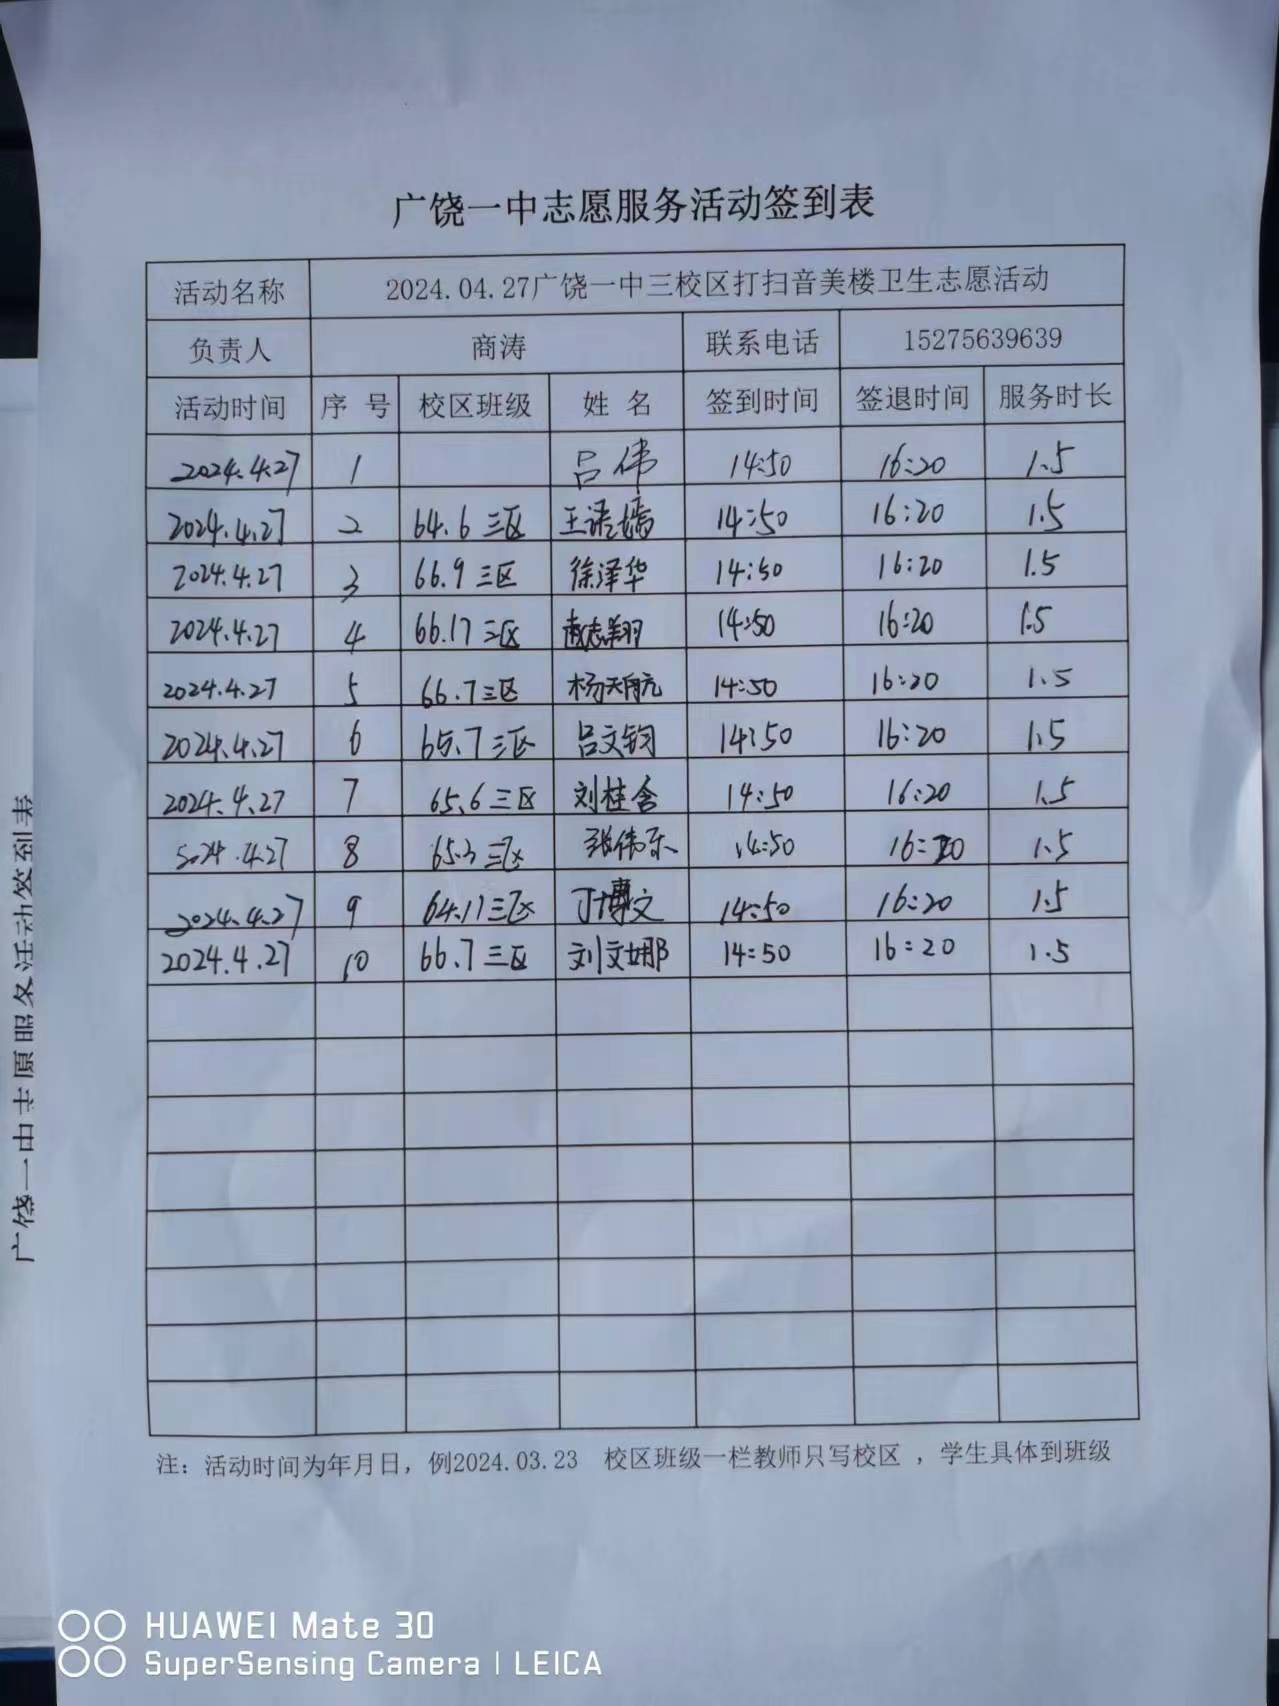 广饶一中志愿服务活动签到表
活动名称 2024.04.27广饶一中三校区打扫音美楼卫生志愿活动
负责人 商涛 联系电话 15275639639
活动时间 序号 校区班级 姓名 签到时间 签退时间 服务时长
2024.4.27 1 吕伟 14:50 16:20 1.5
2024.4.27 2 64.6三区 王 14:50 16:20 1.5
2024.4.27 3 66.9三区 徐泽华 14:50 16:20 1.5
2024.4.27 4 66.17三区 志翔 14:50 16:20 1.5
2024.4.27 5 66.7三区 杨天航 14:50 16:20 1.5
2024.4.27 6 65.7三区 吕文钧 14:50 16:20 1.5
2024.4.27 7 65.6三区 刘桂含 14:50 16:20 1.5
2024.4.27 8 65.3三区 张伟东 14:50 16:20 1.5
2024.4.27 9 64.17三区 丁博文 14:50 16:20 1.5
2024.4.27 10 66.7三区 刘文娜 14:50 16:20 1.5
注：活动时间为年月日，例2024.03.23 校区班级一栏教师只写校区，学生具体到班级
广饶一中志愿服务活动签到表
HUAWEI Mate 30
SuperSensing Camera | LEICA